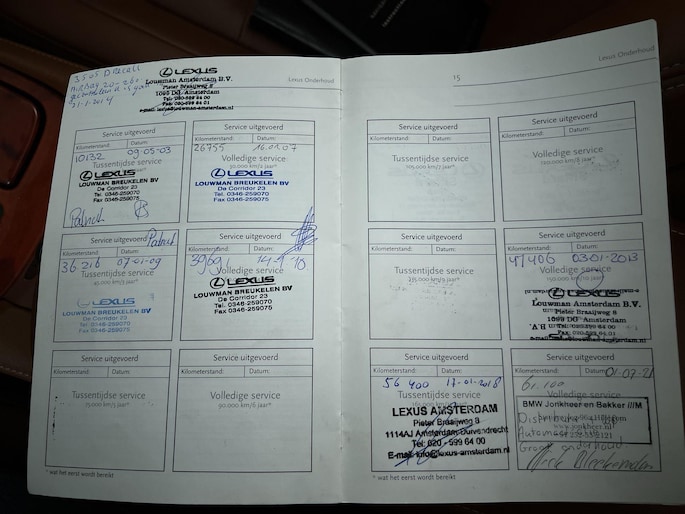 3505 D Recall
Airbag
21-1-2014
LEXUS
Louwman Amsterdam B.V.
Pieter Braaijweg 8
1099 DG Amsterdam
Tel: 020-599 64 00
Fax 020-599 64 01
Lexus Onderhoud
Service uitgevoerd
Kilometerstand: Datum:
10132 09-05-03
Tussentijdse service
LEXUS
LOUWMAN BREUKELEN BV
De Corridor 23
Tel. 0346-259070
Fax 0346-259075
Patrick
Service uitgevoerd
Kilometerstand: Datum:
26755 16.01.07
Volledige service
30.000 km/2 jaar*
LEXUS
LOUWMAN BREUKELEN BV
De Corridor 23
Tel. 0346-259070
Fax 0346-259075
Service uitgevoerd
Patrick
Kilometerstand: Datum:
36216 07-01-09
Tussentijdse service
45.000 km/3 jaar*
LEXUS
LOUWMAN BREUKELEN BV
De Corridor 23
Tel. 0346-259070
Fax 0346-259075
Service uitgevoerd
Kilometerstand: Datum:
Volledige service
LEXUS
LOUWMAN BREUKELEN BV
De Corridor 23
Tel. 0346-259070
Fax 0346-259075
Service uitgevoerd
Kilometerstand: Datum:
Tussentijdse service
75.000 km/5 jaar*
Service uitgevoerd
Kilometerstand: Datum:
Volledige service
90.000 km/6 jaar*
* wat het eerst wordt bereikt
15
Lexus Onderhoud
Service uitgevoerd
Kilometerstand: Datum:
Tussentijdse service
105.000 km/7 jaar*
Service uitgevoerd
Kilometerstand: Datum:
Volledige service
120.000 km/8 jaar*
Service uitgevoerd
Kilometerstand: Datum:
Tussentijdse service
135.000 km/9 jaar*
Service uitgevoerd
Kilometerstand: Datum:
47406 03-01-2013
Volledige service
LEXUS
Louwman Amsterdam B.V.
Pieter Braaijweg 8
1099 DG Amsterdam
Service uitgevoerd
Kilometerstand: Datum:
56 400 17-01-2018
Tussentijdse service
LEXUS AMSTERDAM
Pieter Braaijweg 8
1114AJ Amsterdam-Duivendrecht
Tel: 020 - 599 64 00
E-mail: info@lexus-amsterdam.nl
Service uitgevoerd
Kilometerstand: Datum:
61.100 01-07-21
Volledige service
BMW Jonkheer en Bakker ///M
Distributie
Automaat
Groot onderhoud
* wat het eerst wordt bereikt